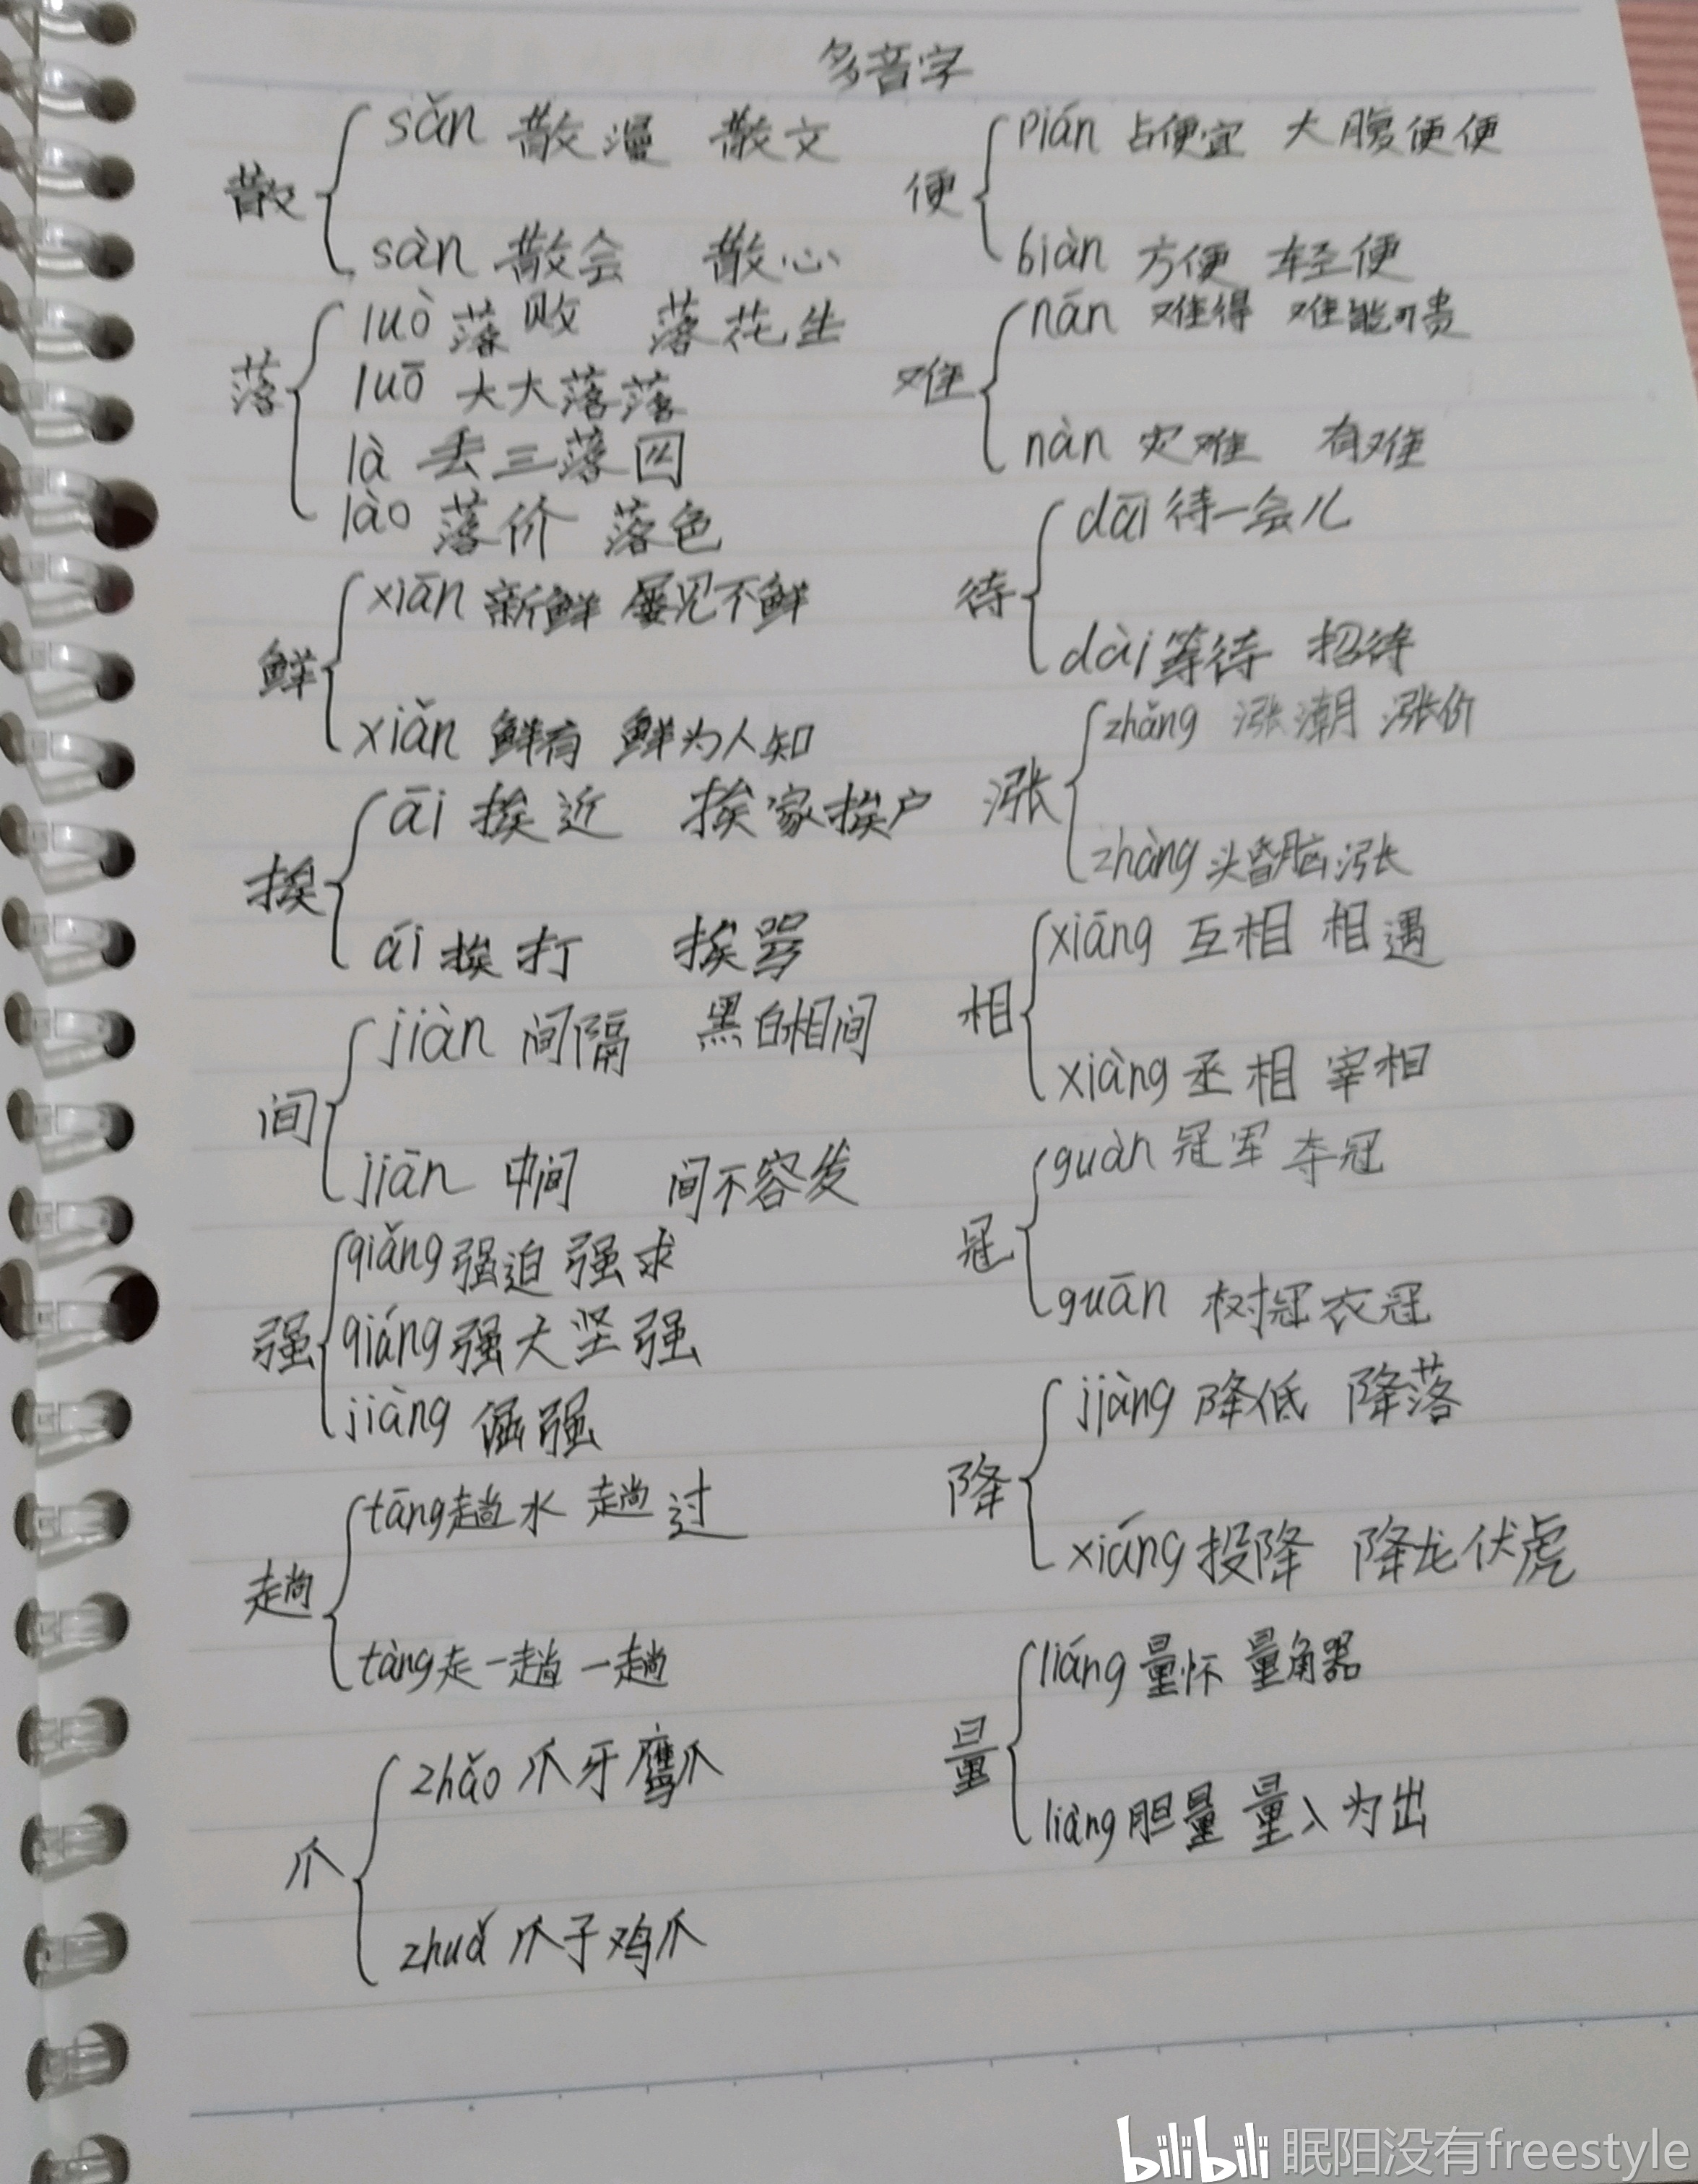 多音字
散
sǎn 散漫 散文
sàn 散会 散心
落
luò 落败 落花生
luō 大大落落
là 丢三落四
lào 落价 落色
鲜
xiān 新鲜 屡见不鲜
xiǎn 鲜有 鲜为人知
挨
āi 挨近 挨家挨户
ái 挨打 挨骂
间
jiàn 间隔 黑白相间
jiān 中间 间不容发
强
qiǎng 强迫 强求
qiáng 强大 坚强
jiàng 倔强
趟
tāng 趟水 趟过
tàng 走一趟 一趟
爪
zhǎo 爪牙 鹰爪
zhuǎ 爪子 鸡爪
便
pián 占便宜 大腹便便
biàn 方便 轻便
难
nán 难得 难能可贵
nàn 灾难 有难
待
dāi 待一会儿
dài 等待 招待
涨
zhǎng 涨潮 涨价
zhàng 头昏脑涨
相
xiāng 互相 相遇
xiàng 丞相 宰相
冠
guàn 冠军 夺冠
guān 树冠 衣冠
降
jiàng 降低 降落
xiáng 投降 降龙伏虎
量
liáng 量杯 量角器
liàng 胆量 量入为出
bilibili 眠阳没有freestyle